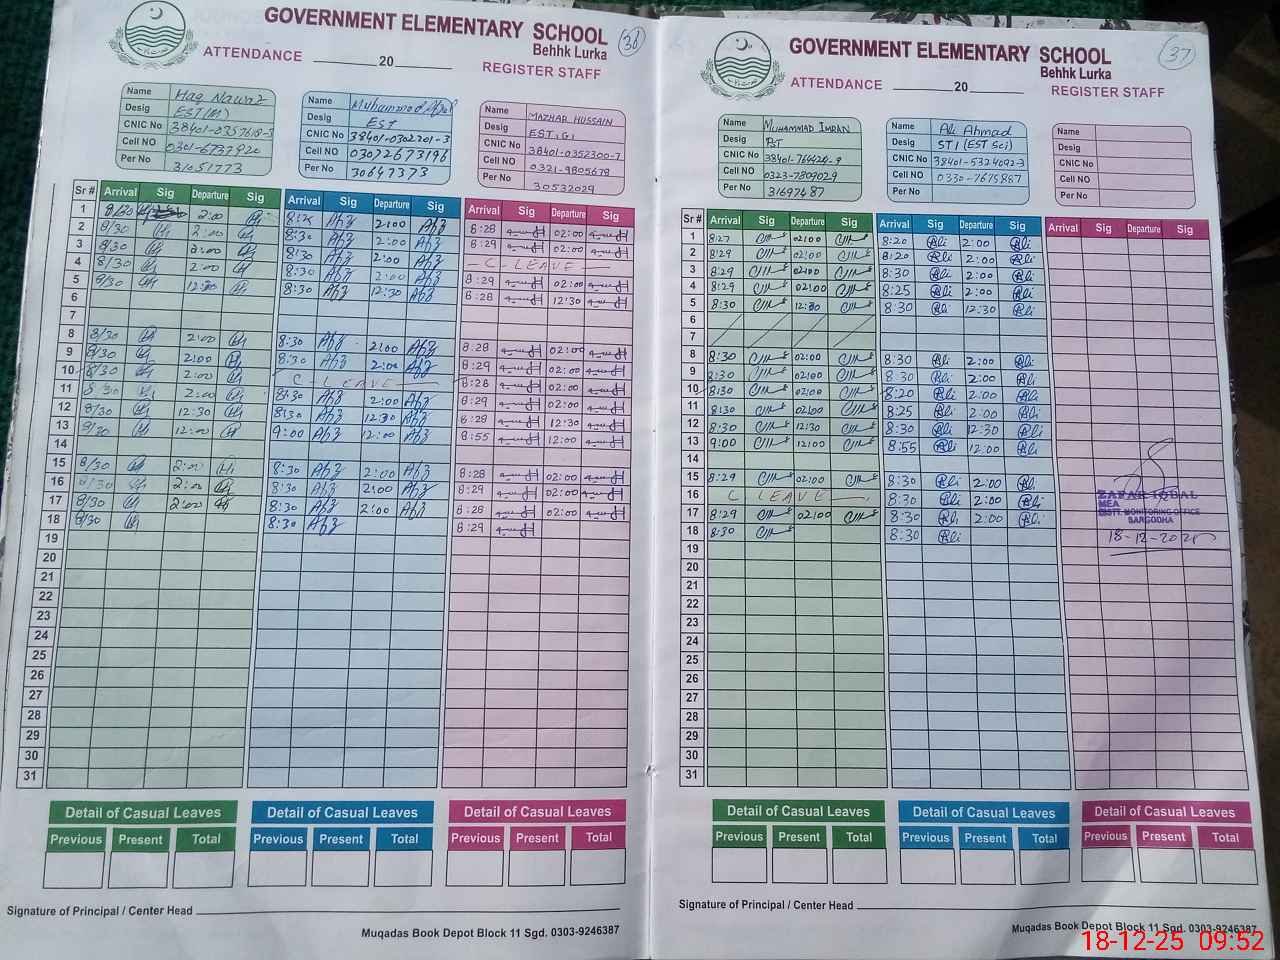 GOVERNMENT ELEMENTARY SCHOOL
Behhk Lurka
36
ATTENDANCE ________ 20 ________
REGISTER STAFF
Name Haq Nawaz
Desig EST(M)
CNIC No 38401-0357618-3
Cell NO 0301-6737920
Per No 31051773
Name Muhammad Afzal
Desig EST
CNIC No 38401-0302201-3
Cell NO 03022673196
Per No 30647373
Name MAZHAR HUSSAIN
Desig EST, G,
CNIC No 38401-0352300-7
Cell NO 0321-9805678
Per No 30532029
Sr # Arrival Sig Departure Sig Arrival Sig Departure Sig Arrival Sig Departure Sig
1 8/30 2:00 8:25 Afz 2:00 Afz 8:28 02:00
2 8/30 2:00 8:30 Afz 2:00 Afz 8:29 02:00
3 8/30 2:00 8:30 Afz 2:00 Afz C-LEAVE
4 8/30 2:00 8:30 Afz 2:00 Afz 8:29 02:00
5 8/30 12:30 8:30 Afz 12:30 Afz 8:28 12:30
6
7
8 8/30 2:00 8:30 Afz 2:00 Afz 8:28 02:00
9 8/30 2:00 8:30 Afz 2:00 Afz 8:29 02:00
10 8/30 2:00 C-LEAVE 8:28 02:00
11 8/30 2:00 8:30 Afz 2:00 Afz 8:29 02:00
12 8/30 12:30 8:30 Afz 12:30 Afz 8:28 12:30
13 9/20 12:00 9:00 Afz 12:00 Afz 8:55 12:00
14
15 8/30 2:00 8:30 Afz 2:00 Afz 8:28 02:00
16 8/30 2:00 8:30 Afz 2:00 Afz 8:29 02:00
17 8/30 2:00 8:30 Afz 2:00 Afz 8:28 02:00
18 8/30 8:30 Afz 8:29
19
20
21
22
23
24
25
26
27
28
29
30
31
Detail of Casual Leaves Detail of Casual Leaves Detail of Casual Leaves
Previous Present Total Previous Present Total Previous Present Total
Signature of Principal / Center Head
Muqadas Book Depot Block 11 Sgd. 0303-9246387
GOVERNMENT ELEMENTARY SCHOOL
Behhk Lurka
37
ATTENDANCE ________ 20 ________
REGISTER STAFF
Name MUHAMMAD IMRAN
Desig PST
CNIC No
Cell NO 0323-7809029
Per No 31697487
Name Ali Ahmad
Desig STI (EST Sci)
CNIC No 38401-5324092-3
Cell NO 0330-7615887
Per No
Name
Desig
CNIC No
Cell NO
Per No
Sr # Arrival Sig Departure Sig Arrival Sig Departure Sig Arrival Sig Departure Sig
1 8:27 02:00 8:20 Ali 2:00 Ali
2 8:29 02:00 8:20 Ali 2:00 Ali
3 8:29 02:00 8:30 Ali 2:00 Ali
4 8:29 02:00 8:25 Ali 2:00 Ali
5 8:30 12:30 8:30 Ali 12:30 Ali
6
7
8 8:30 02:00 8:30 Ali 2:00 Ali
9 8:30 02:00 8:30 Ali 2:00 Ali
10 8:30 02:00 8:20 Ali 2:00 Ali
11 8:30 02:00 8:25 Ali 2:00 Ali
12 8:30 12:30 8:30 Ali 12:30 Ali
13 9:00 12:00 8:55 Ali 12:00 Ali
14
15 8:29 02:00 8:30 Ali 2:00 Ali
16 C LEAVE 8:30 Ali 2:00 Ali
17 8:29 02:00 8:30 Ali 2:00 Ali
18 8:30 8:30 Ali
19
20
21
22
23
24
25
26
27
28
29
30
31
ZAFAR IQBAL
MEA
DISTT. MONITORING OFFICE
SARGODHA
18-12-2025
Detail of Casual Leaves Detail of Casual Leaves Detail of Casual Leaves
Previous Present Total Previous Present Total Previous Present Total
Signature of Principal / Center Head
Muqadas Book Depot Block 11 Sgd. 0303-9246387
18-12-25 09:52